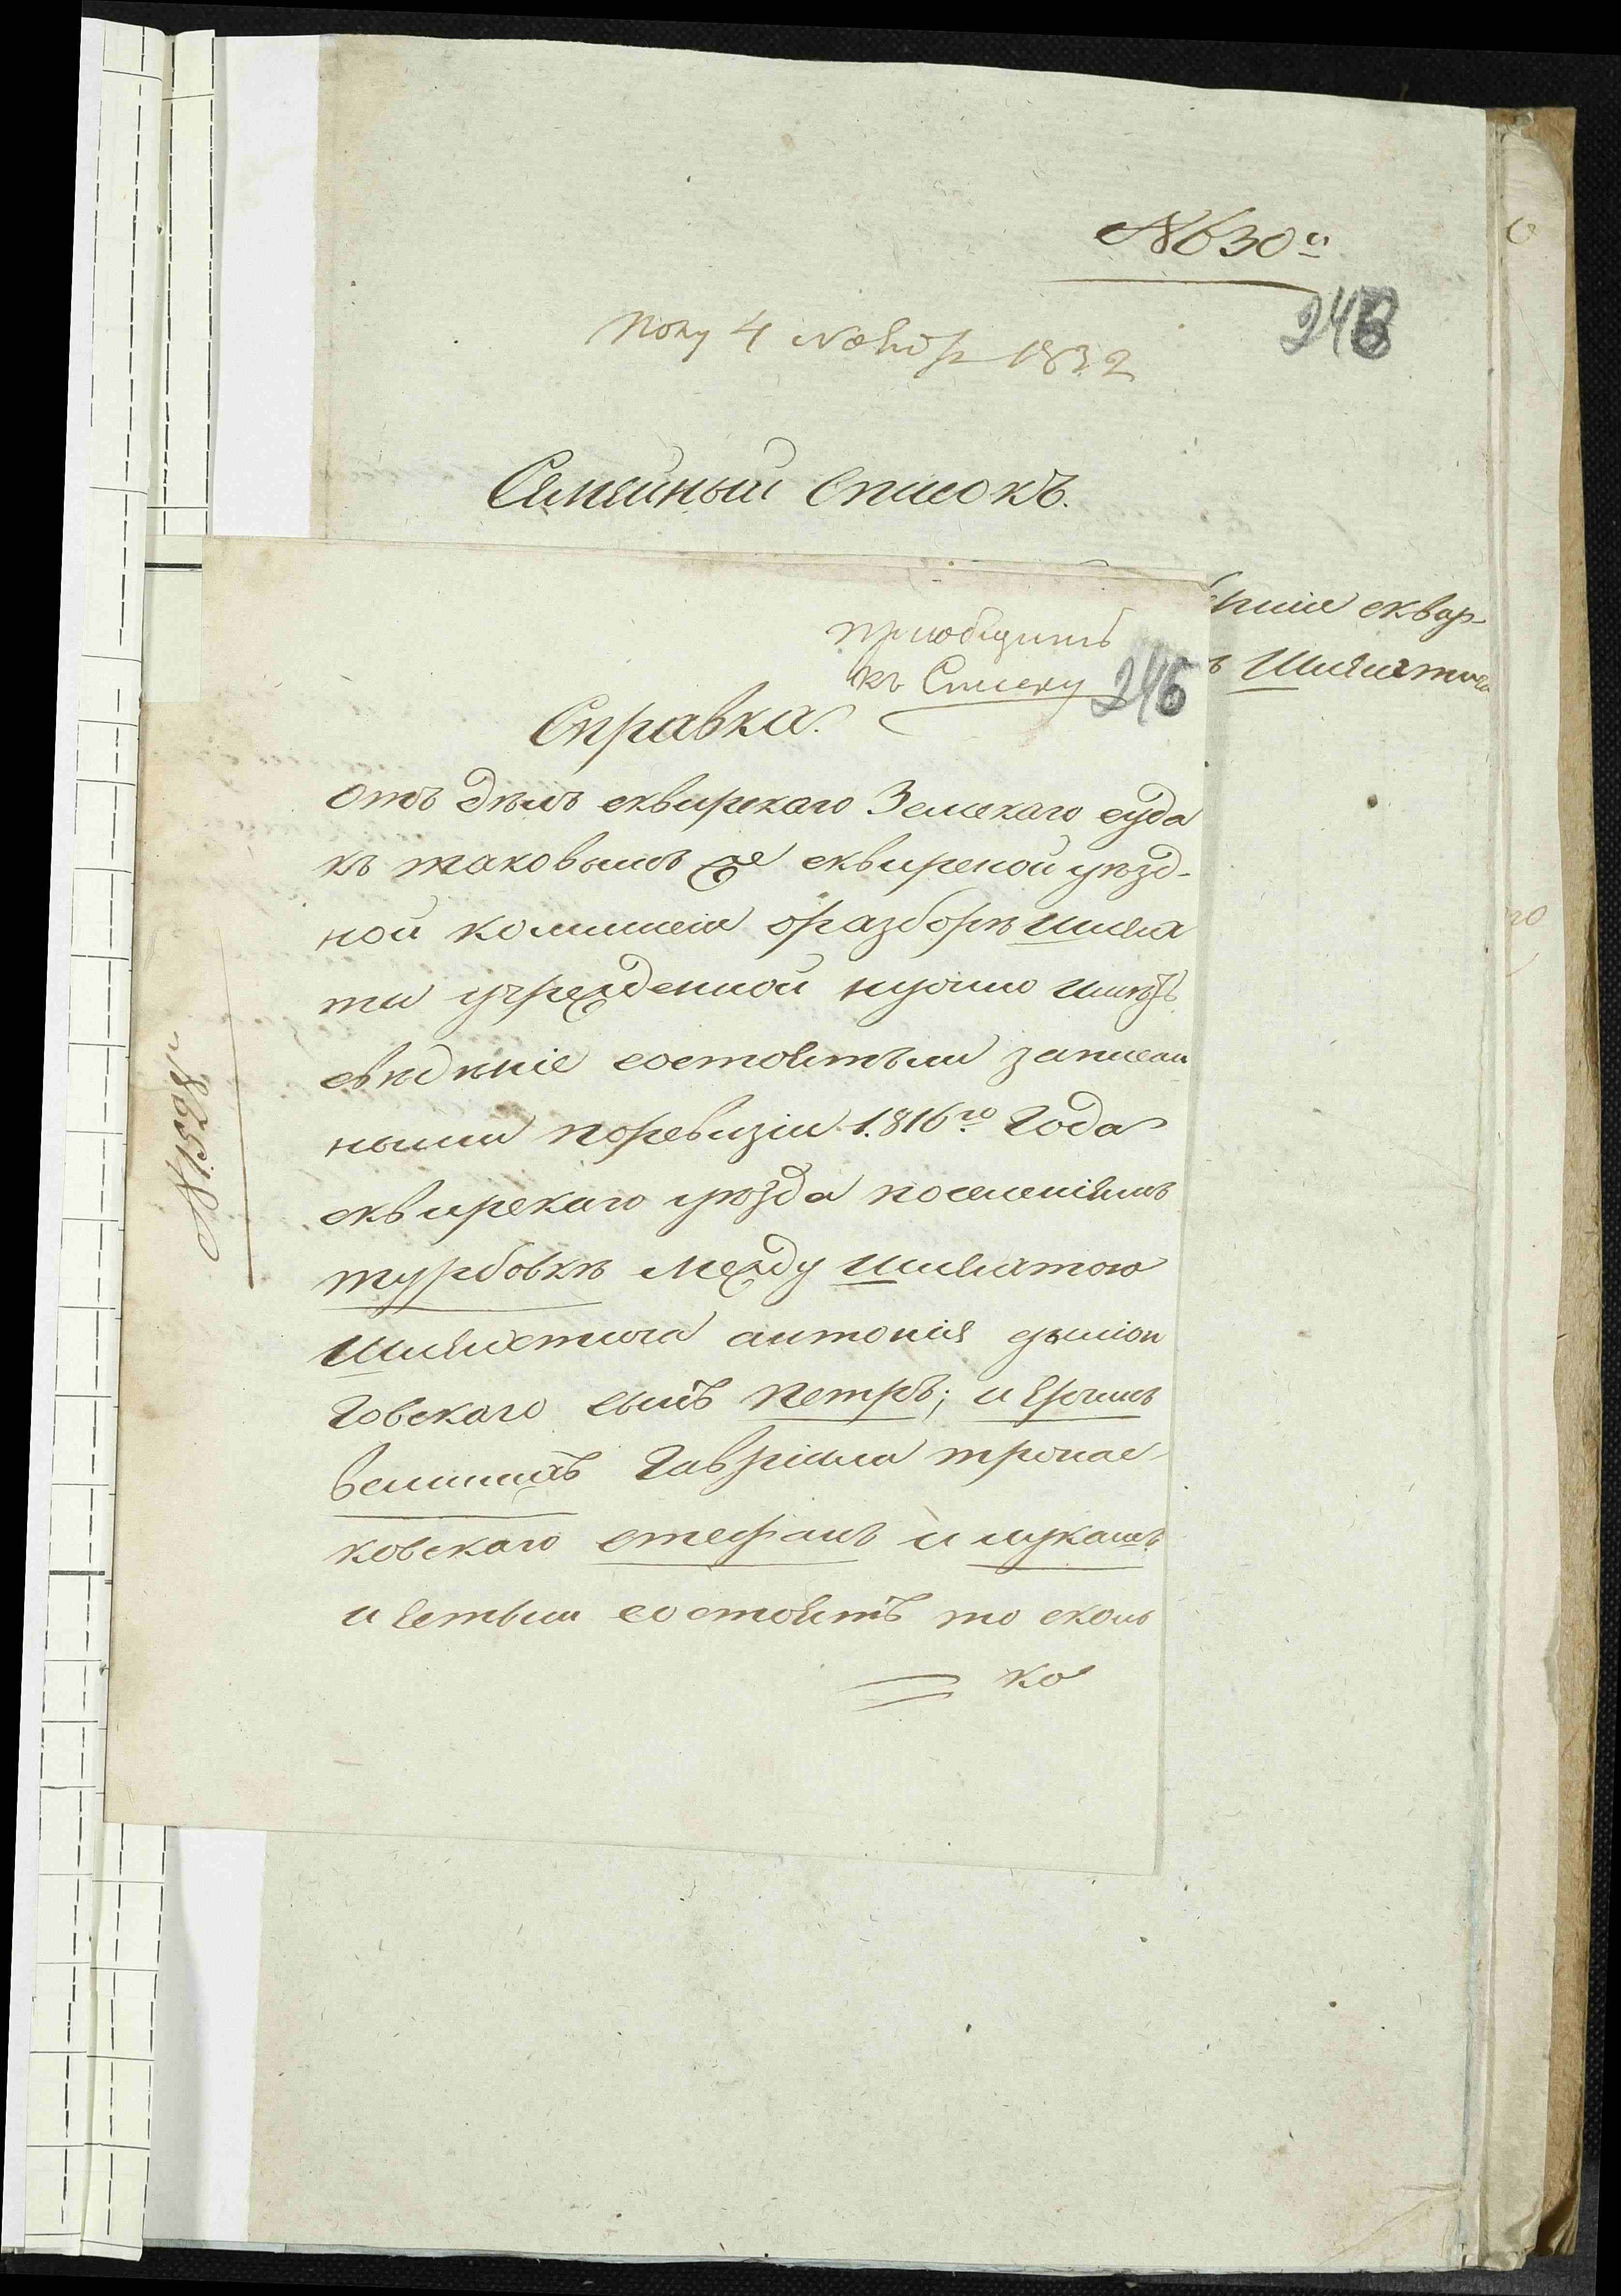 № 630й
248
Полу 4 Ноября 1832
Семейный Списокъ.
сквир-
Шляхтича
приобщить
къ Списку
246
Справка.
отъ дѣлъ сквирскаго Земскаго суда
къ таковымъ же сквирской уѣзд-
ной коммисіи о разборѣ шлях
ты учрежденной нужно имѣть
свѣденіе состоятъ ли записан
ными поревизіи 1.816го Года
сквирскаго уѣзда поселеніямъ
турбовкѣ между шляхтою
Шляхтича антонія
говскаго сынъ Петръ; и
Гавріила
ковскаго стефанъ и лукашъ
и естьли состоятъ то сколь
ко
№ 1.528